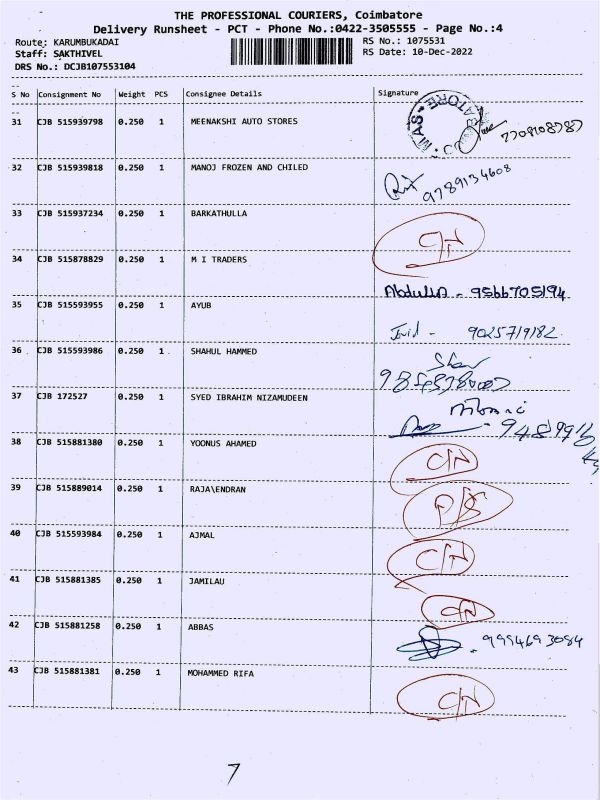 THE PROFESSIONAL COURIERS, Coimbatore
Delivery Runsheet - PCT - Phone No.:0422-3505555 - Page No.:4
Route: KARUMBUKADAI RS No.: 1075531
Staff: SAKTHIVEL RS Date: 10-Dec-2022
DRS No.: DCJB107553104
S No Consignment No Weight PCS Consignee Details Signature
31 CJB 515939798 0.250 1 MEENAKSHI AUTO STORES 7709108787
32 CJB 515939818 0.250 1 MANOJ FROZEN AND CHILED 9789134608
33 CJB 515937234 0.250 1 BARKATHULLA C/N
34 CJB 515878829 0.250 1 M I TRADERS Abdulla - 9566705194
35 CJB 515593955 0.250 1 AYUB 9025719182
36 CJB 515593986 0.250 1 SHAHUL HAMMED
37 CJB 172527 0.250 1 SYED IBRAHIM NIZAMUDEEN
38 CJB 515881380 0.250 1 YOONUS AHAMED C/N
39 CJB 515889014 0.250 1 RAJA\ENDRAN D/S
40 CJB 515593984 0.250 1 AJMAL C/N
41 CJB 515881385 0.250 1 JAMILAU C/N
42 CJB 515881258 0.250 1 ABBAS - 9994693084
43 CJB 515881381 0.250 1 MOHAMMED RIFA C/N
7